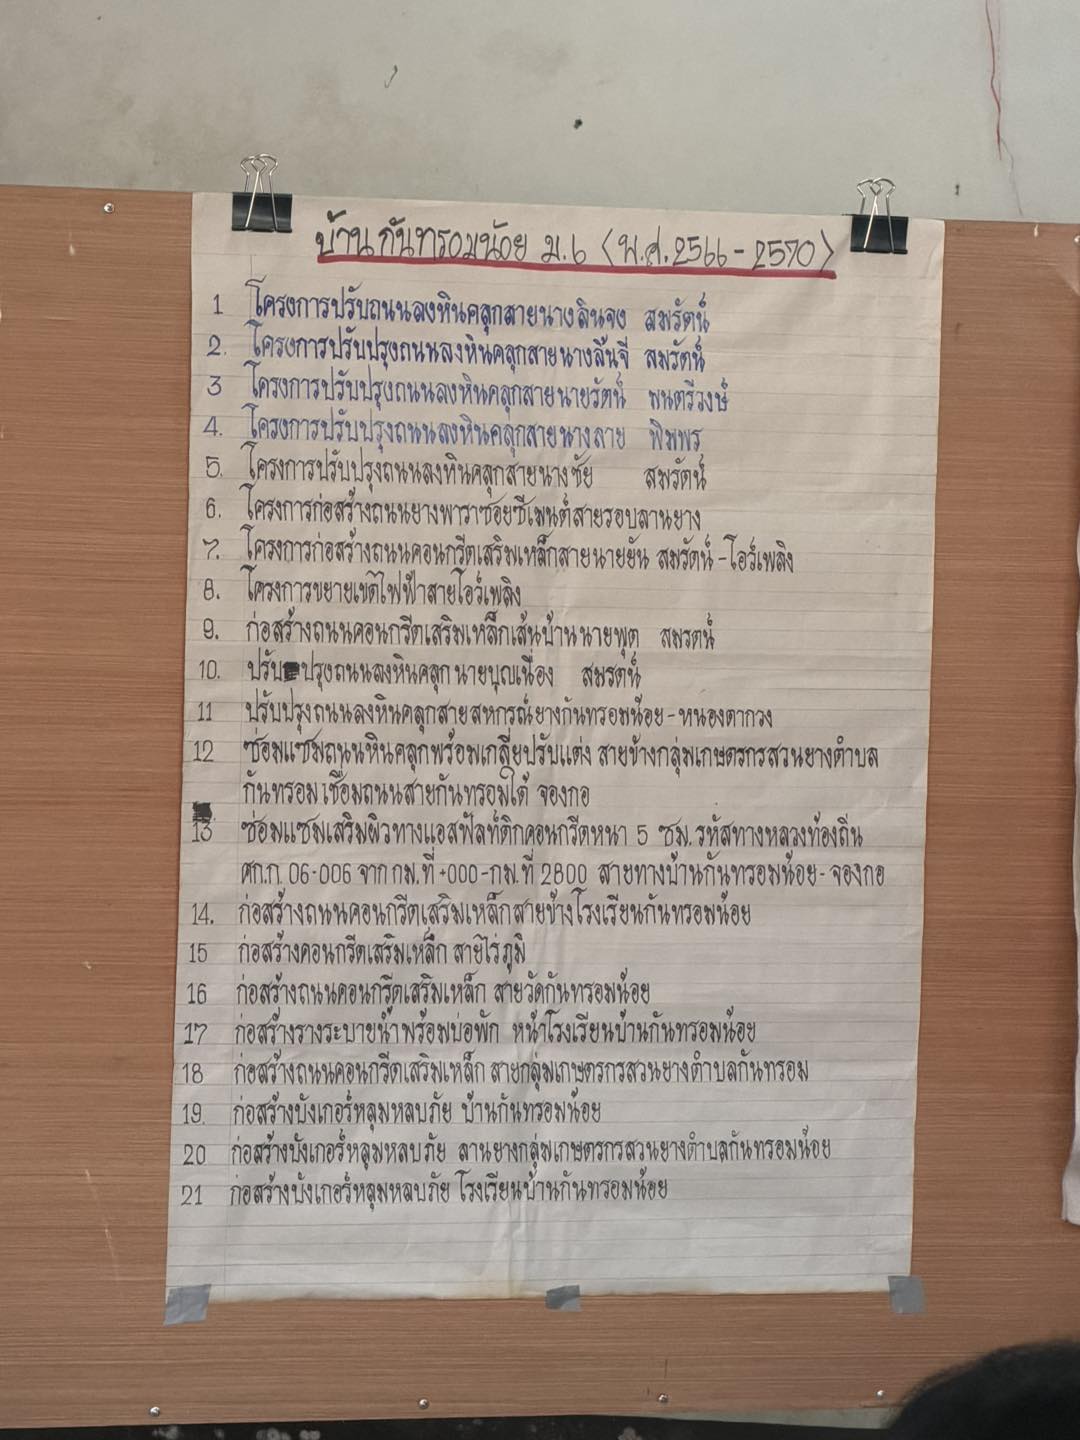 บ้านกันทรอมน้อย ม.6 (พ.ศ.2566-2570)
1 โครงการปรับถนนลงหินคลุกสายนางลินจง สมรัตน์
2. โครงการปรับปรุงถนนลงหินคลุกสายนางลิ้นจี่ สมรัตน์
3 โครงการปรับปรุงถนนลงหินคลุกสายนายรัตน์ พนตรีวงษ์
4. โครงการปรับปรุงถนนลงหินคลุกสายนางลาย พิมพร
5. โครงการปรับปรุงถนนลงหินคลุกสายนางชัย สมรัตน์
6. โครงการก่อสร้างถนนยางพาราซอยซีเมนต์สายรอบลานยาง
7. โครงการก่อสร้างถนนคอนกรีตเสริมเหล็กสายนายยัน สมรัตน์ - โอว์เพลิง
8. โครงการขยายเขตไฟฟ้าสายโอว์เพลิง
9. ก่อสร้างถนนคอนกรีตเสริมเหล็กเส้นบ้านนายพุต สมรตน์
10. ปรับปรุงถนนลงหินคลุกนายบุญเนื่อง สมรตน์
11 ปรับปรุงถนนลงหินคลุกสายสหกรณ์ยางกันทรอมน้อย-หนองตากวง
12 ซ่อมแซมถนนหินคลุกพร้อมเกลี่ยปรับแต่ง สายข้างกลุ่มเกษตรกรสวนยางตำบล
กันทรอม เชื่อมถนนสายกันทรอมใต้ จองกอ
13 ซ่อมแซมเสริมผิวทางแอสฟัลท์ติกคอนกรีตหนา 5 ซม. รหัสทางหลวงท้องถิ่น
ศก.ถ. 06-006 จาก กม.ที่ +000-กม.ที่ 2800 สายทางบ้านกันทรอมน้อย-จองกอ
14. ก่อสร้างถนนคอนกรีตเสริมเหล็กสายข้างโรงเรียนกันทรอมน้อย
15 ก่อสร้างคอนกรีตเสริมเหล็ก สายไร่ภูมิ
16 ก่อสร้างถนนคอนกรีตเสริมเหล็ก สายวัดกันทรอมน้อย
17 ก่อสร้างรางระบายน้ำพร้อมบ่อพัก หน้าโรงเรียนบ้านกันทรอมน้อย
18 ก่อสร้างถนนคอนกรีตเสริมเหล็ก สายกลุ่มเกษตรกรสวนยางตำบลกันทรอม
19. ก่อสร้างบังเกอร์หลุมหลบภัย บ้านกันทรอมน้อย
20 ก่อสร้างบังเกอร์หลุมหลบภัย ลานยางกลุ่มเกษตรกรสวนยางตำบลกันทรอมน้อย
21 ก่อสร้างบังเกอร์หลุมหลบภัย โรงเรียนบ้านกันทรอมน้อย